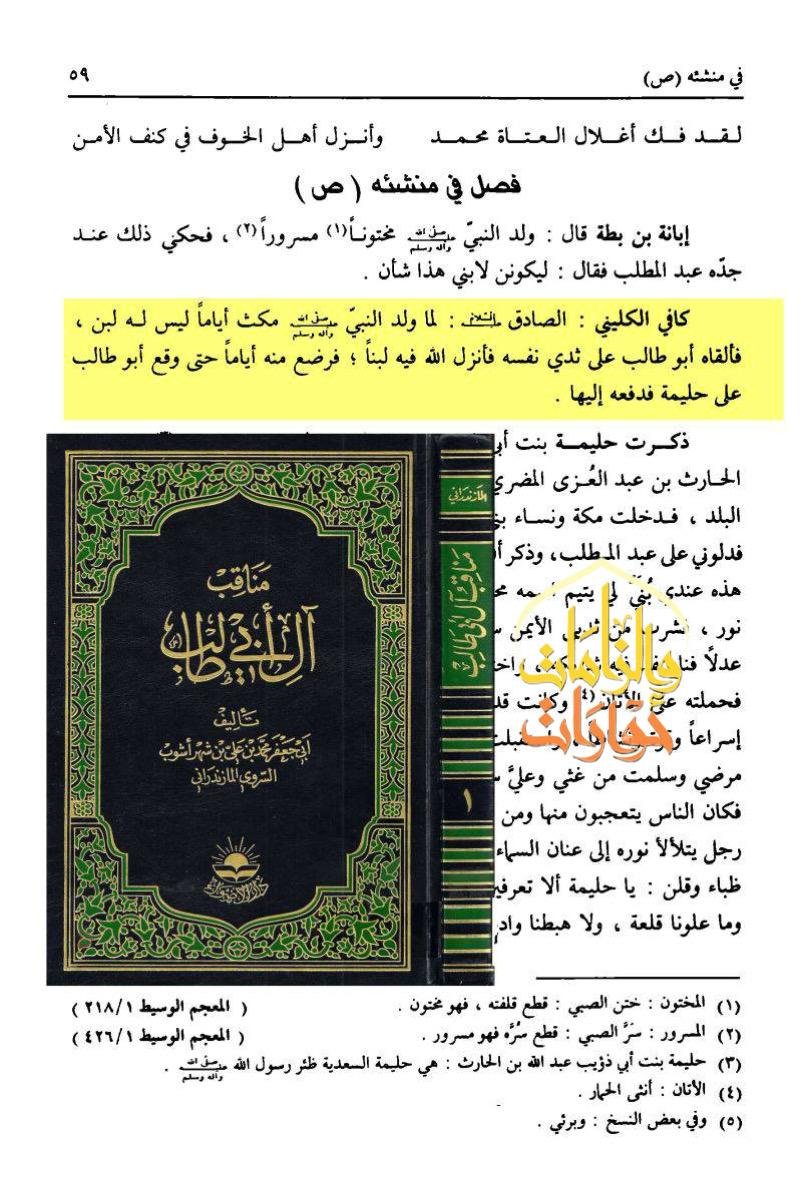 في منشئه (ص)
٥٩
لقد فك أغلال العتاة محمد وأنزل أهل الخوف في كنف الأمن
فصل في منشئه ( ص )
إبانة بن بطة قال : ولد النبيّ صلى الله وآله وسلم مختوناً(١) مسروراً(٢) ، فحكي ذلك عند
جدّه عبد المطلب فقال : ليكونن لابني هذا شأن .
كافي الكليني : الصادق : لما ولد النبيّ صلى الله وآله وسلم مكث أياماً ليس له لبن ،
فألقاه أبو طالب على ثدي نفسه فأنزل الله فيه لبناً ؛ فرضع منه أياماً حتى وقع أبو طالب
على حليمة فدفعه إليها .
ذكرت حليمة بنت أبي
الحارث بن عبد العُزى المضري
البلد ، فدخلت مكة ونساء
فدلوني على عبد المطلب، وذكر
هذه عندي بُنَي لي يتيم
نور ، من الأيمن
عدلاً
فحملته على الأتان(٤) وكانت
إسراعاً
مرضي وسلمت من غثي وعليَّ
فكان الناس يتعجبون منها ومن
رجل يتلألأ نوره إلى عنان السماء
ظباء وقلن : يا حليمة ألا
وما علونا قلعة ، ولا هبطنا
مناقب
آل أبي طالب
تأليف
ابي جعفر محمد بن علي بن شهر آشوب
السروي المازندراني
دار الأضواء
المازندراني
مناقب آل أبي طالب
١
حوارات
والزامات
(١) المختون : ختن الصبي : قطع قلفته ، فهو مختون . ( المعجم الوسيط ٢١٨/١ )
(٢) المسرور : سَرَّ الصبي : قطع سُرَّه فهو مسرور . ( المعجم الوسيط ٤٢٦/١ )
(٣) حليمة بنت أبي ذؤيب عبد الله بن الحارث : هي حليمة السعدية ظئر رسول الله صلى الله وآله وسلم .
(٤) الأتان : أنثى الحمار .
(٥) وفي بعض النسخ : وبرئي .